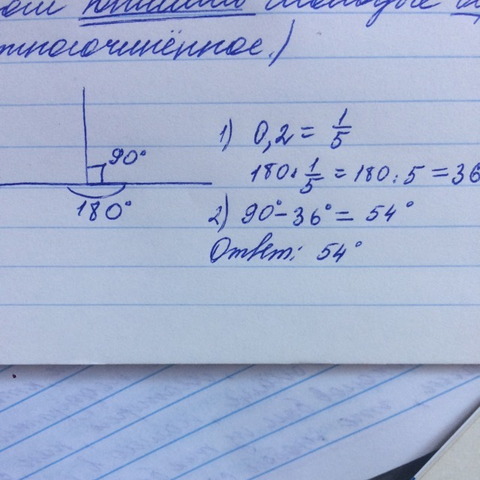 тногочинённое.)
90°
180°
1) 0,2 = 1/5
180 · 1/5 = 180 : 5 = 36
2) 90° - 36° = 54°
Ответ: 54°